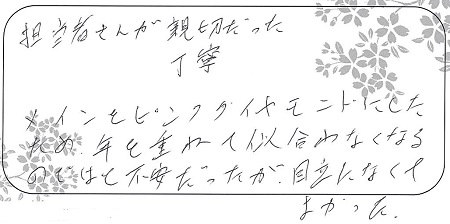 担当者さんが親切だった
丁寧
※インをピンクダイヤモンドにした
ため、年を重ねて似合わなくなる
のではと不安だったが、目立になくて
よかった。